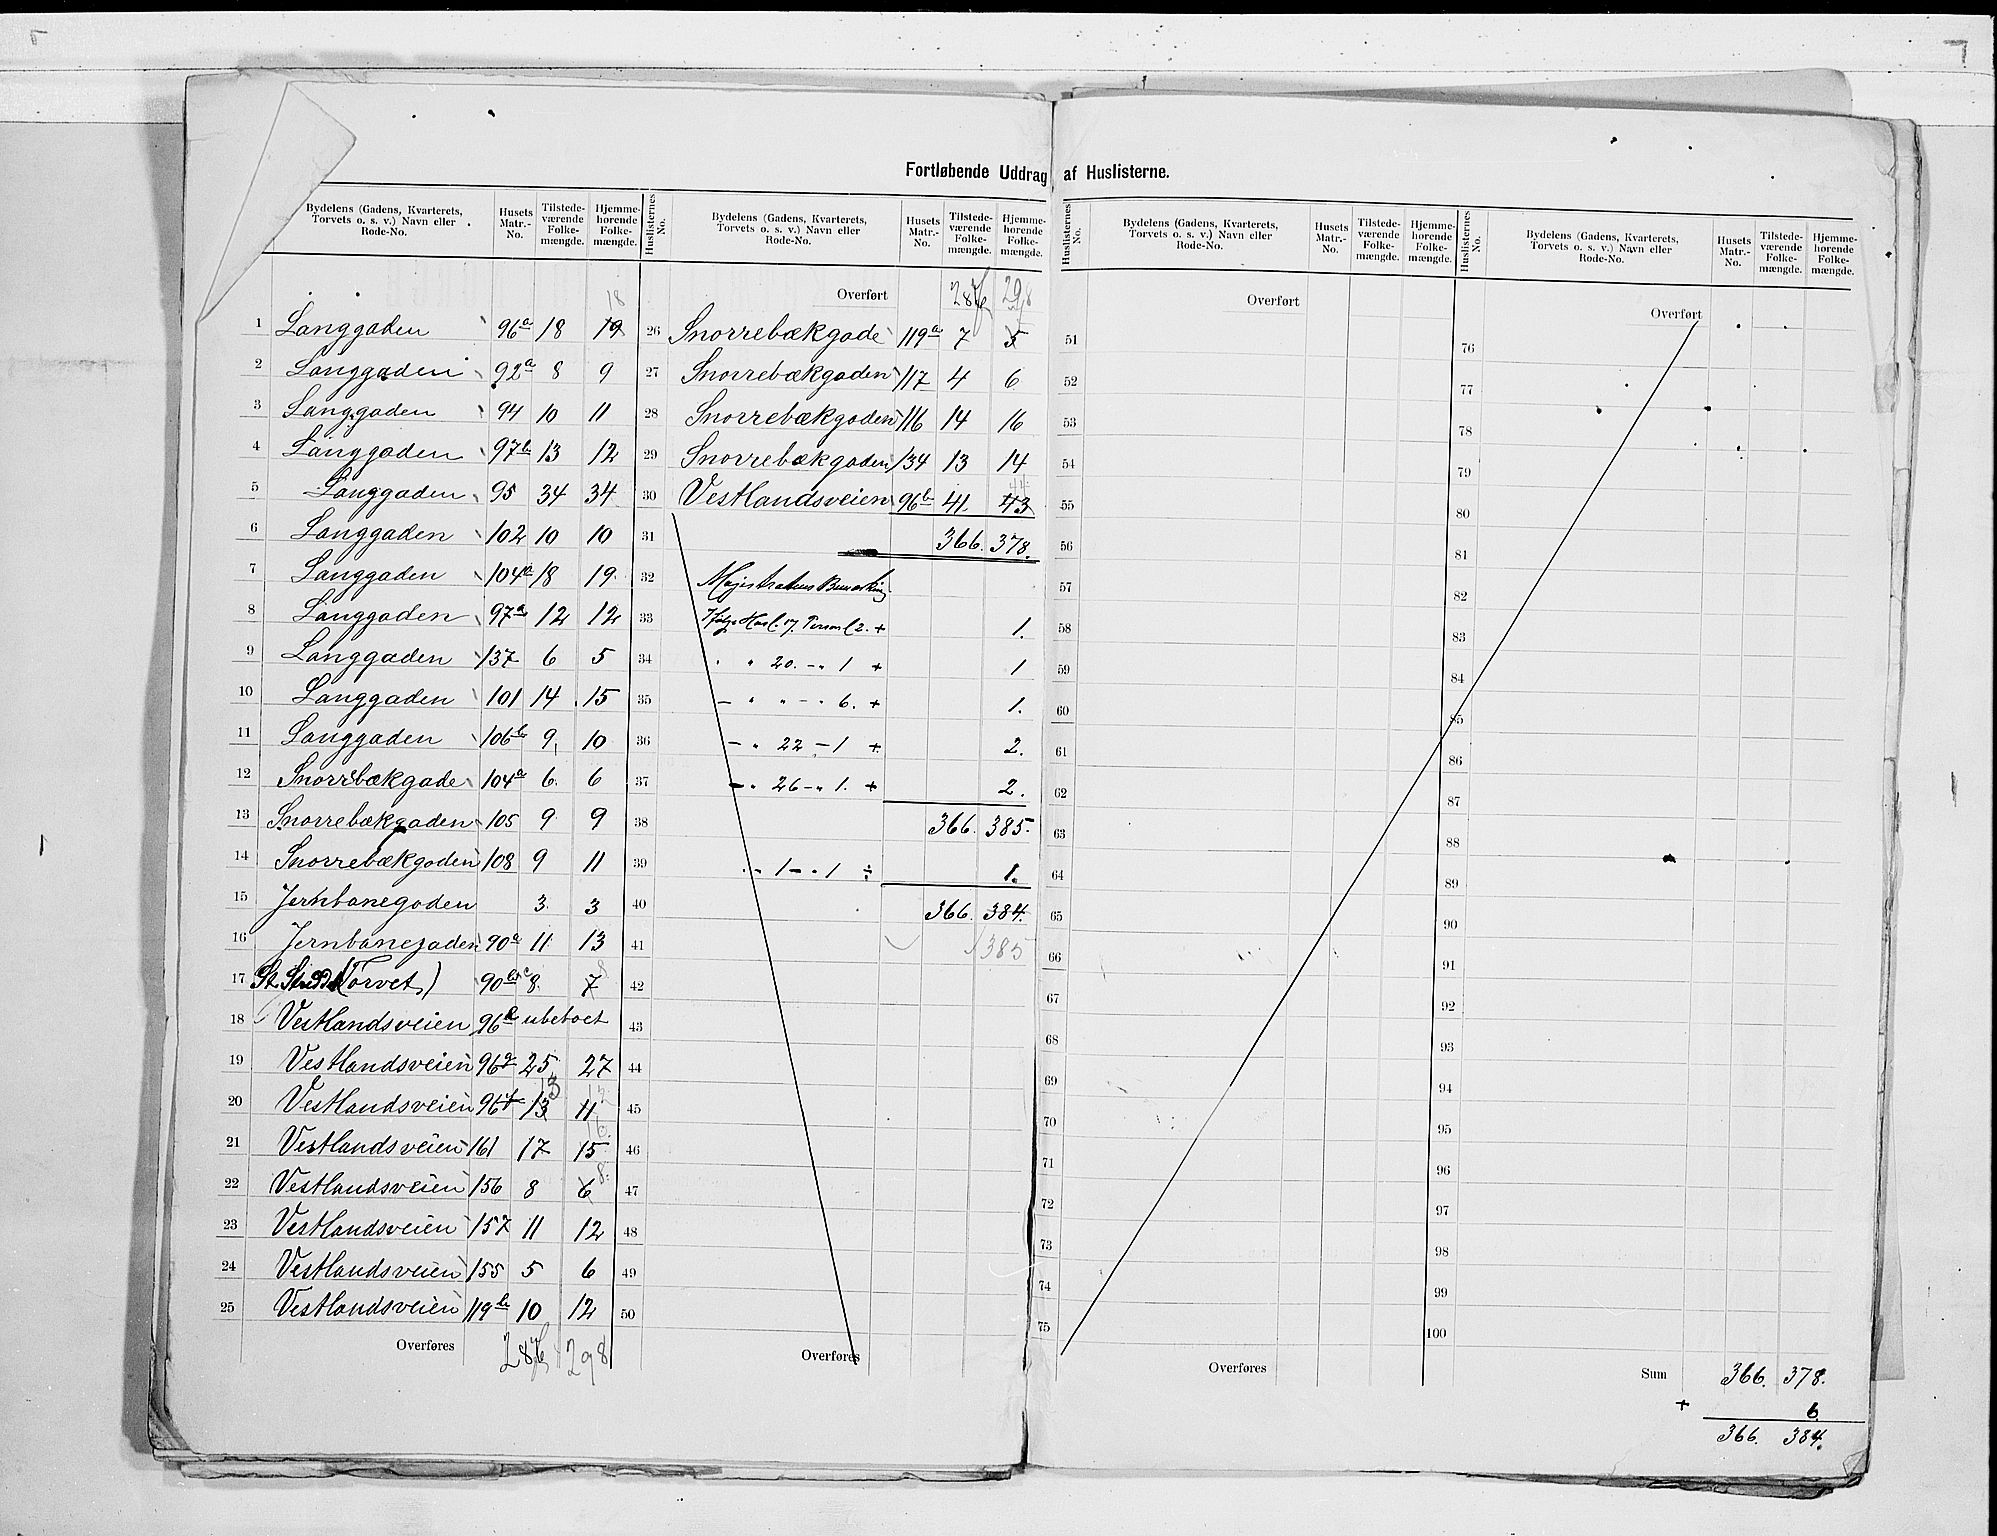 Fortløbende Uddrag af Huslisterne.
Bydelens (Gadens, Kvarterets, Torvets o. s. v.) Navn eller Rode-No. Husets Matr.-No. Tilstede-værende Folke-mængde. Hjemme-hørende Folke-mængde.
18
1 Langgaden 96a 18 19
2 Langgaden 92a 8 9
3 Langgaden 94 10 11
4 Langgaden 97b 13 12
5 Langgaden 95 34 34
6 Langgaden 102 10 10
7 Langgaden 104a 18 19.
8 Langgaden 97a 12 12
9 Langgaden 137 6 5
10 Langgaden 101 14 15
11 Langgaden 106b 9 10
12 Snorrebækgade 104a 6. 6
13 Snorrebækgaden 105 9 9
14 Snorrebækgaden 108 9 11
15 Jernbanegaden 3. 3
16 Jernbanegaden 90a 11 13
17 (Torvet) 90 8. 7
18 Vestlandsveien 96 ubeboet
19 Vestlandsveien 96g 25 27
13
20 Vestlandsveien 96f 13 11
21 Vestlandsveien 161 17 15
8.
22 Vestlandsveien 156 8 6
23 Vestlandsveien 157 11 12
24 Vestlandsveien 155 5 6
25 Vestlandsveien 119b 10 12
Overføres 298
Huslisternes No. Bydelens (Gadens, Kvarterets, Torvets o. s. v.) Navn eller Rode-No. Husets Matr.-No. Tilstede-værende Folke-mængde. Hjemme-hørende Folke-mængde.
Overført 298
26 Snorrebækgade 119a 7 5
27 Snorrebækgaden 117 4 6
28 Snorrebækgaden 116 14 16
29 Snorrebækgaden 134 13 14
44
30 Vestlandsveien 96b 41 43
31 366. 378.
32 Magistratens Bemærkning
33 Ifølge Husl. 17. Person l 2. + 1.
34 " " 20. - " 1 + 1
35 - " " - " 6. + 1.
36 - " 22 - 1 + 2.
37 - " 26 - " 1. + 2.
38 366. 385.
39 " 1 - " 1 ÷ 1.
40 366. 384.
41 385
42
43
44
45
46
47
48
49
50
Overføres
Huslisternes No. Bydelens (Gadens, Kvarterets, Torvets o. s. v.) Navn eller Rode-No. Husets Matr.-No. Tilstede-værende Folke-mængde. Hjemme-hørende Folke-mængde.
Overført
51
52
53
54
55
56
57
58
59
60
61
62
63
64
65
66
67
68
69
70
71
72
73
74
75
Overføres
Huslisternes No. Bydelens (Gadens, Kvarterets, Torvets o. s. v.) Navn eller Rode-No. Husets Matr.-No. Tilstede-værende Folke-mængde. Hjemme-hørende Folke-mængde.
Overført
76
77
78
79
80
81
82
83
84
85
86
87
88
89
90
91
92
93
94
95
96
97
98
99
100
Sum 366. 378.
+ 6
366. 384.